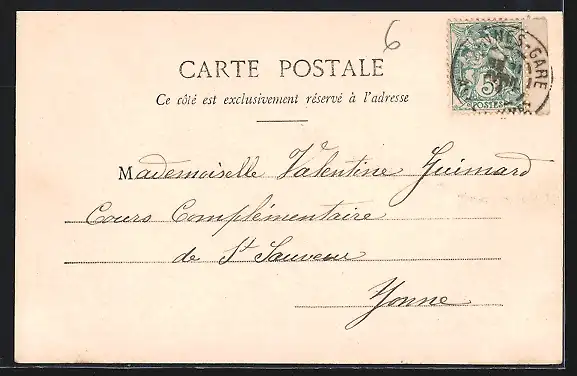 6
CARTE POSTALE
Ce côté est exclusivement réservé à l'adresse
Mademoiselle Valentine Guimard
Cours Complémentaire
de St Sauveur
Yonne
5
POSTES
GARE